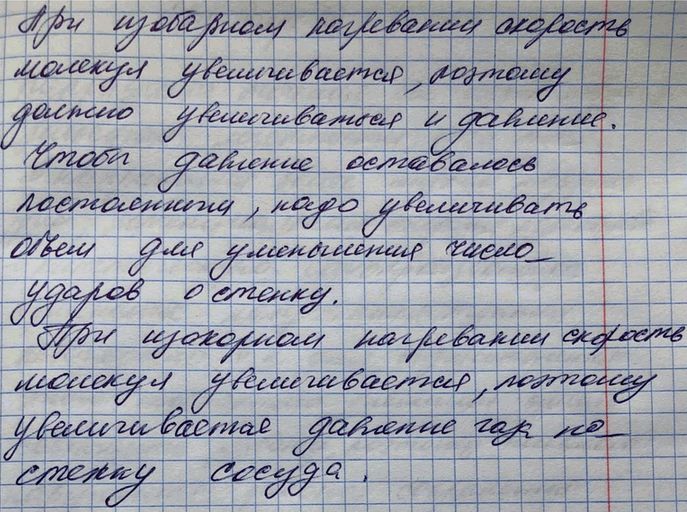 При изобарном нагревании скорость
молекул увеличивается, поэтому
должно увеличиваться и давление.
Чтобы давление оставалось
постоянным, надо увеличивать
объем для уменьшения число_
ударов о стенку.
При изохорном нагревании скорость
молекул увеличивается, поэтому
увеличивается давление газ по_
стенку сосуда.